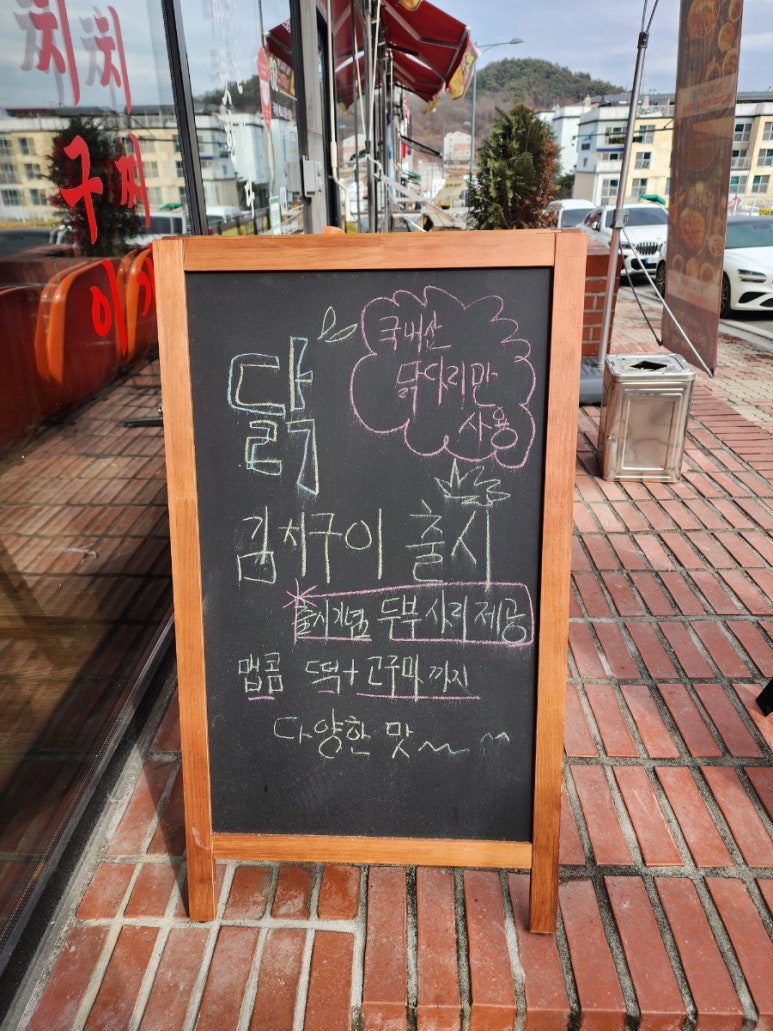 국내산
닭다리만
사용
닭
김치구이 출시
출시기념 두부사리 제공
맵콤 도떡+고구마까지
다양한 맛~~ ^^
치 치
구 찌
이 개